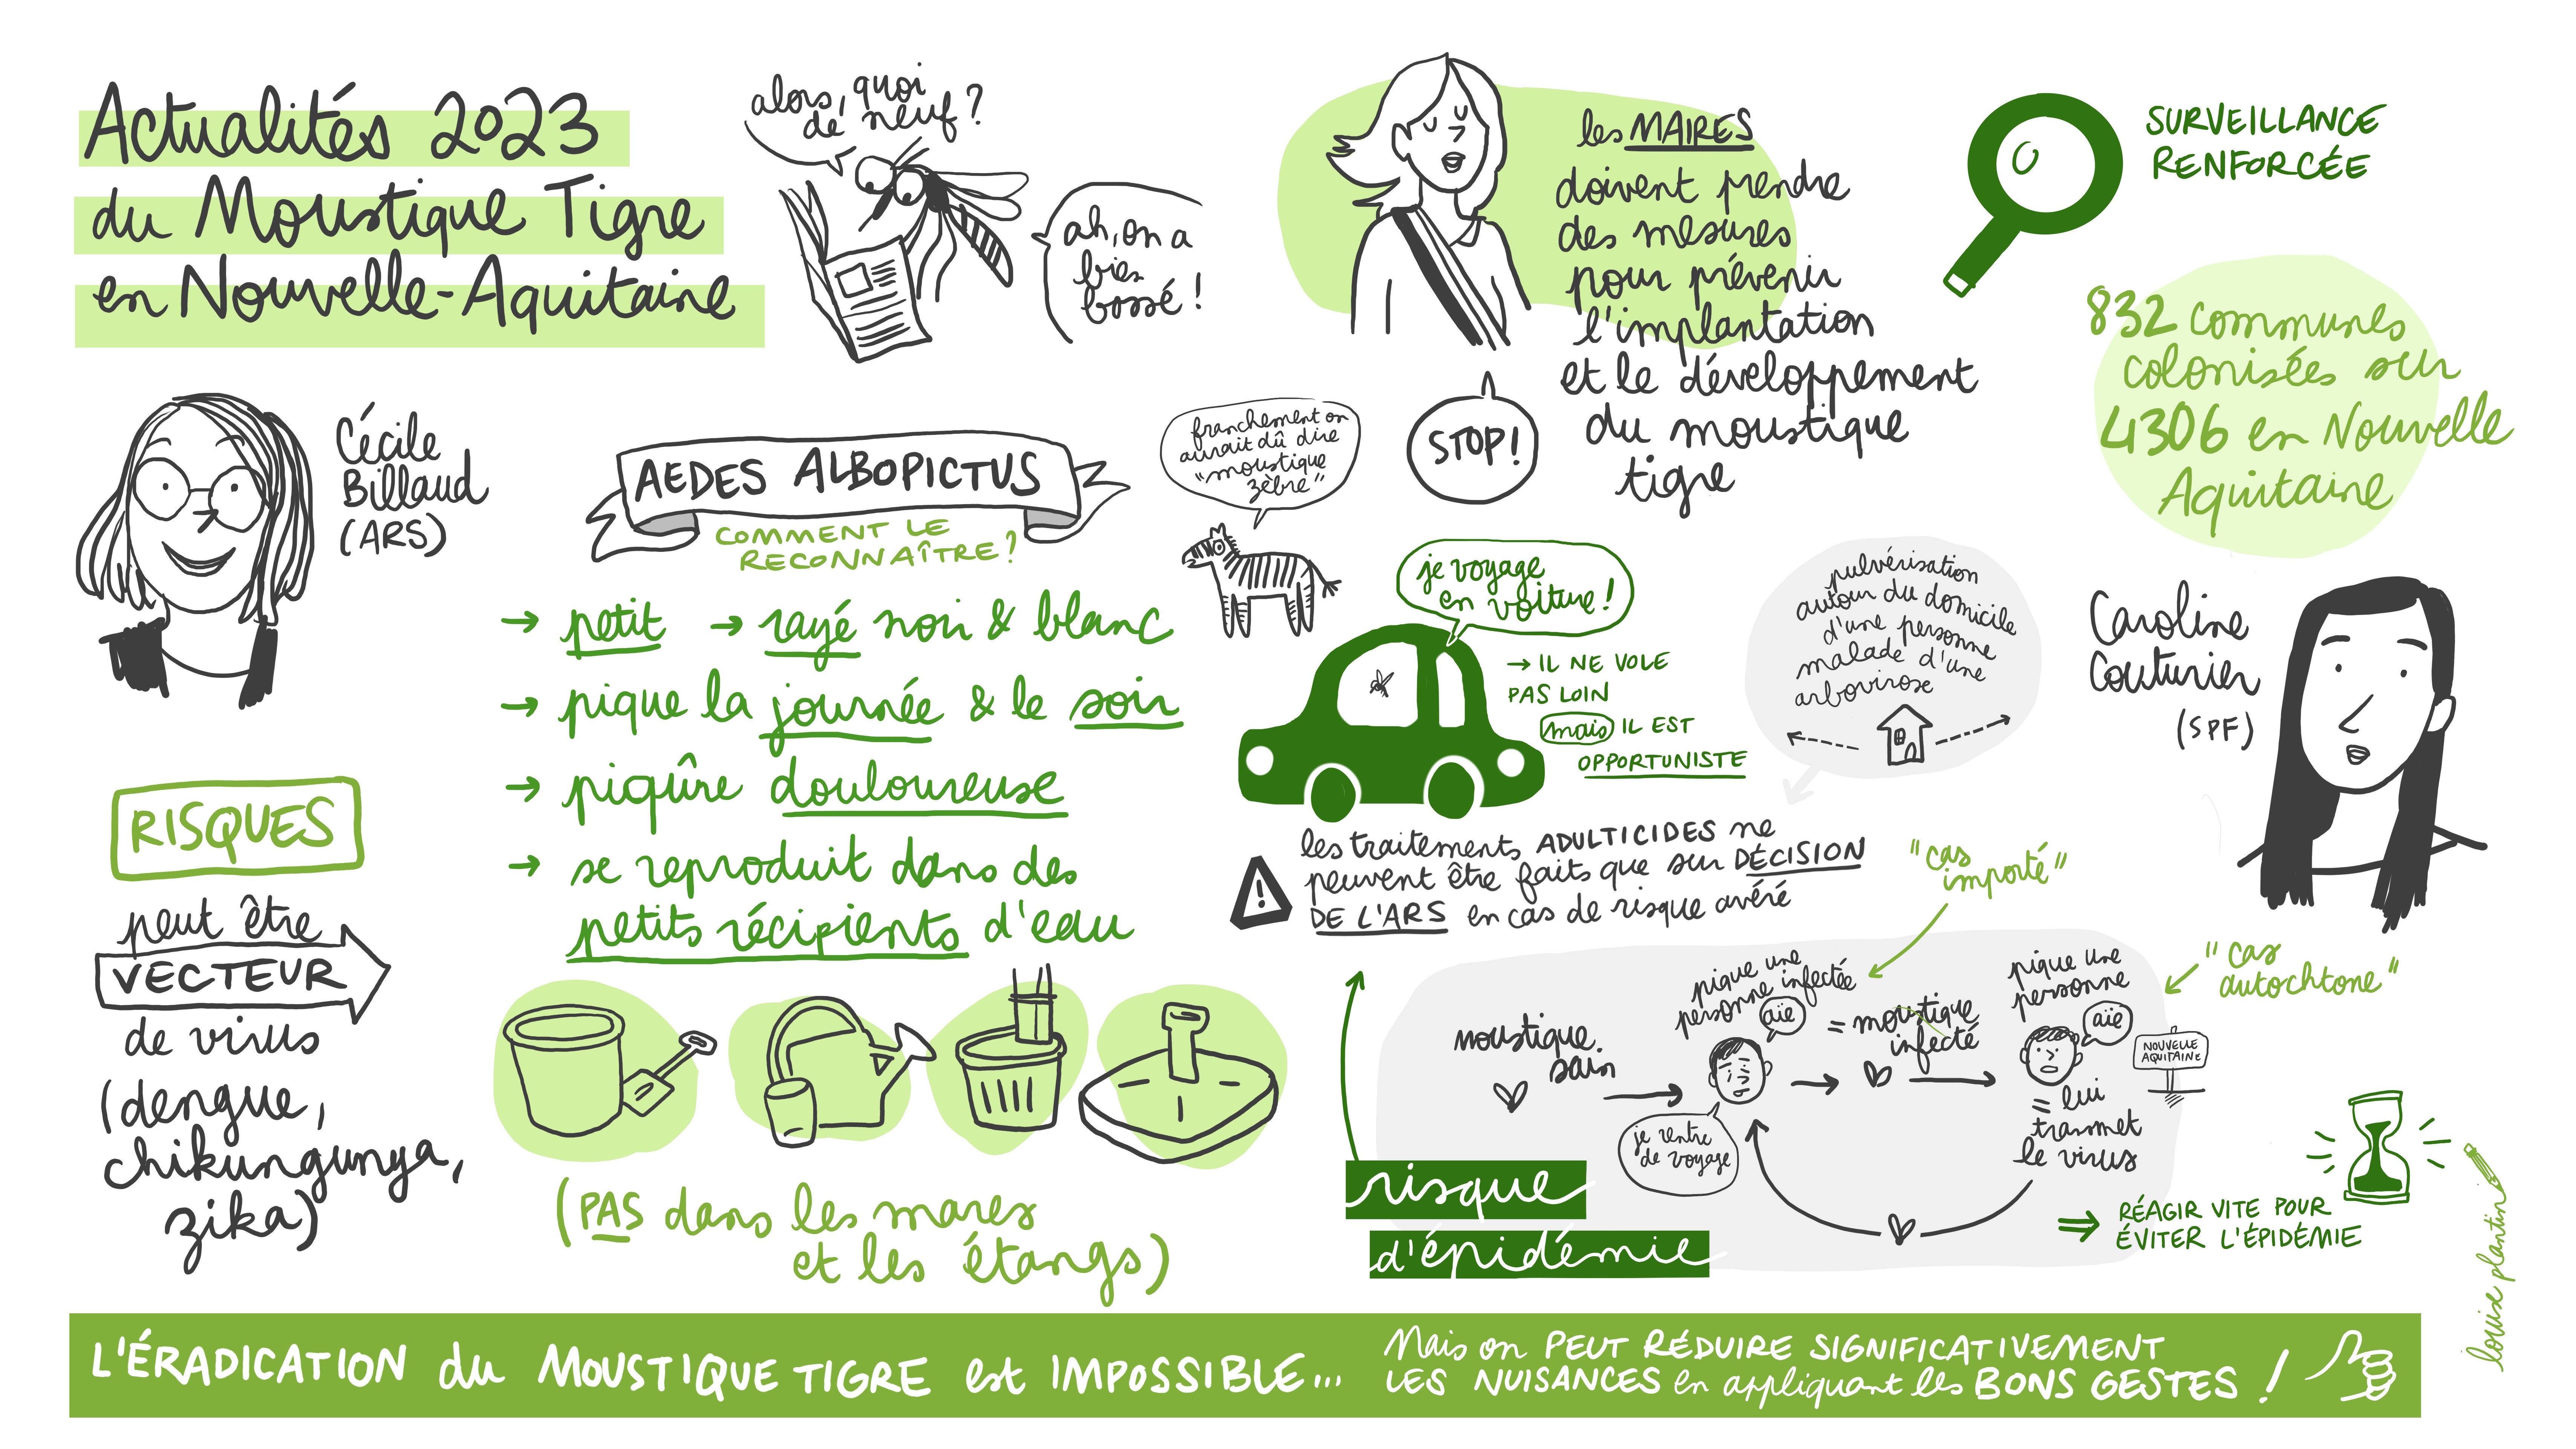 Actualités 2023
du Moustique Tigre
en Nouvelle-Aquitaine
alors, quoi
de neuf?
ah, on a
bien
bossé!
les MAIRES
doivent prendre
des mesures
pour prévenir
l'implantation
et le développement
du moustique
tigre
STOP!
SURVEILLANCE
RENFORCÉE
832 communes
colonisées sur
4306 en Nouvelle
Aquitaine
Cécile
Billaud
(ARS)
AEDES ALBOPICTUS
COMMENT LE
RECONNAÎTRE?
franchement on
aurait dû dire
"moustique
zèbre"
→ petit → rayé noir & blanc
→ pique la journée & le soir
→ piqûre douloureuse
→ se reproduit dans des
petits récipients d'eau
(PAS dans les mares
et les étangs)
RISQUES
peut être
VECTEUR
de virus
(dengue,
chikungunya,
zika)
je voyage
en voiture!
→ IL NE VOLE
PAS LOIN
mais IL EST
OPPORTUNISTE
pulvérisation
autour du domicile
d'une personne
malade d'une
arbovirose
Caroline
Couturier
(SPF)
les traitements ADULTICIDES ne
peuvent être faits que sur DÉCISION
DE L'ARS en cas de risque avéré
"cas
importé"
"cas
autochtone"
moustique
sain
pique une
personne infectée
aïe
je rentre
de voyage
= moustique
infecté
pique une
personne
aïe
NOUVELLE
AQUITAINE
= lui
transmet
le virus
risque
d'épidémie
⇒ RÉAGIR VITE POUR
ÉVITER L'ÉPIDÉMIE
louise plantin
L'ÉRADICATION du MOUSTIQUE TIGRE est IMPOSSIBLE...
Mais on PEUT RÉDUIRE SIGNIFICATIVEMENT
LES NUISANCES en appliquant les BONS GESTES!